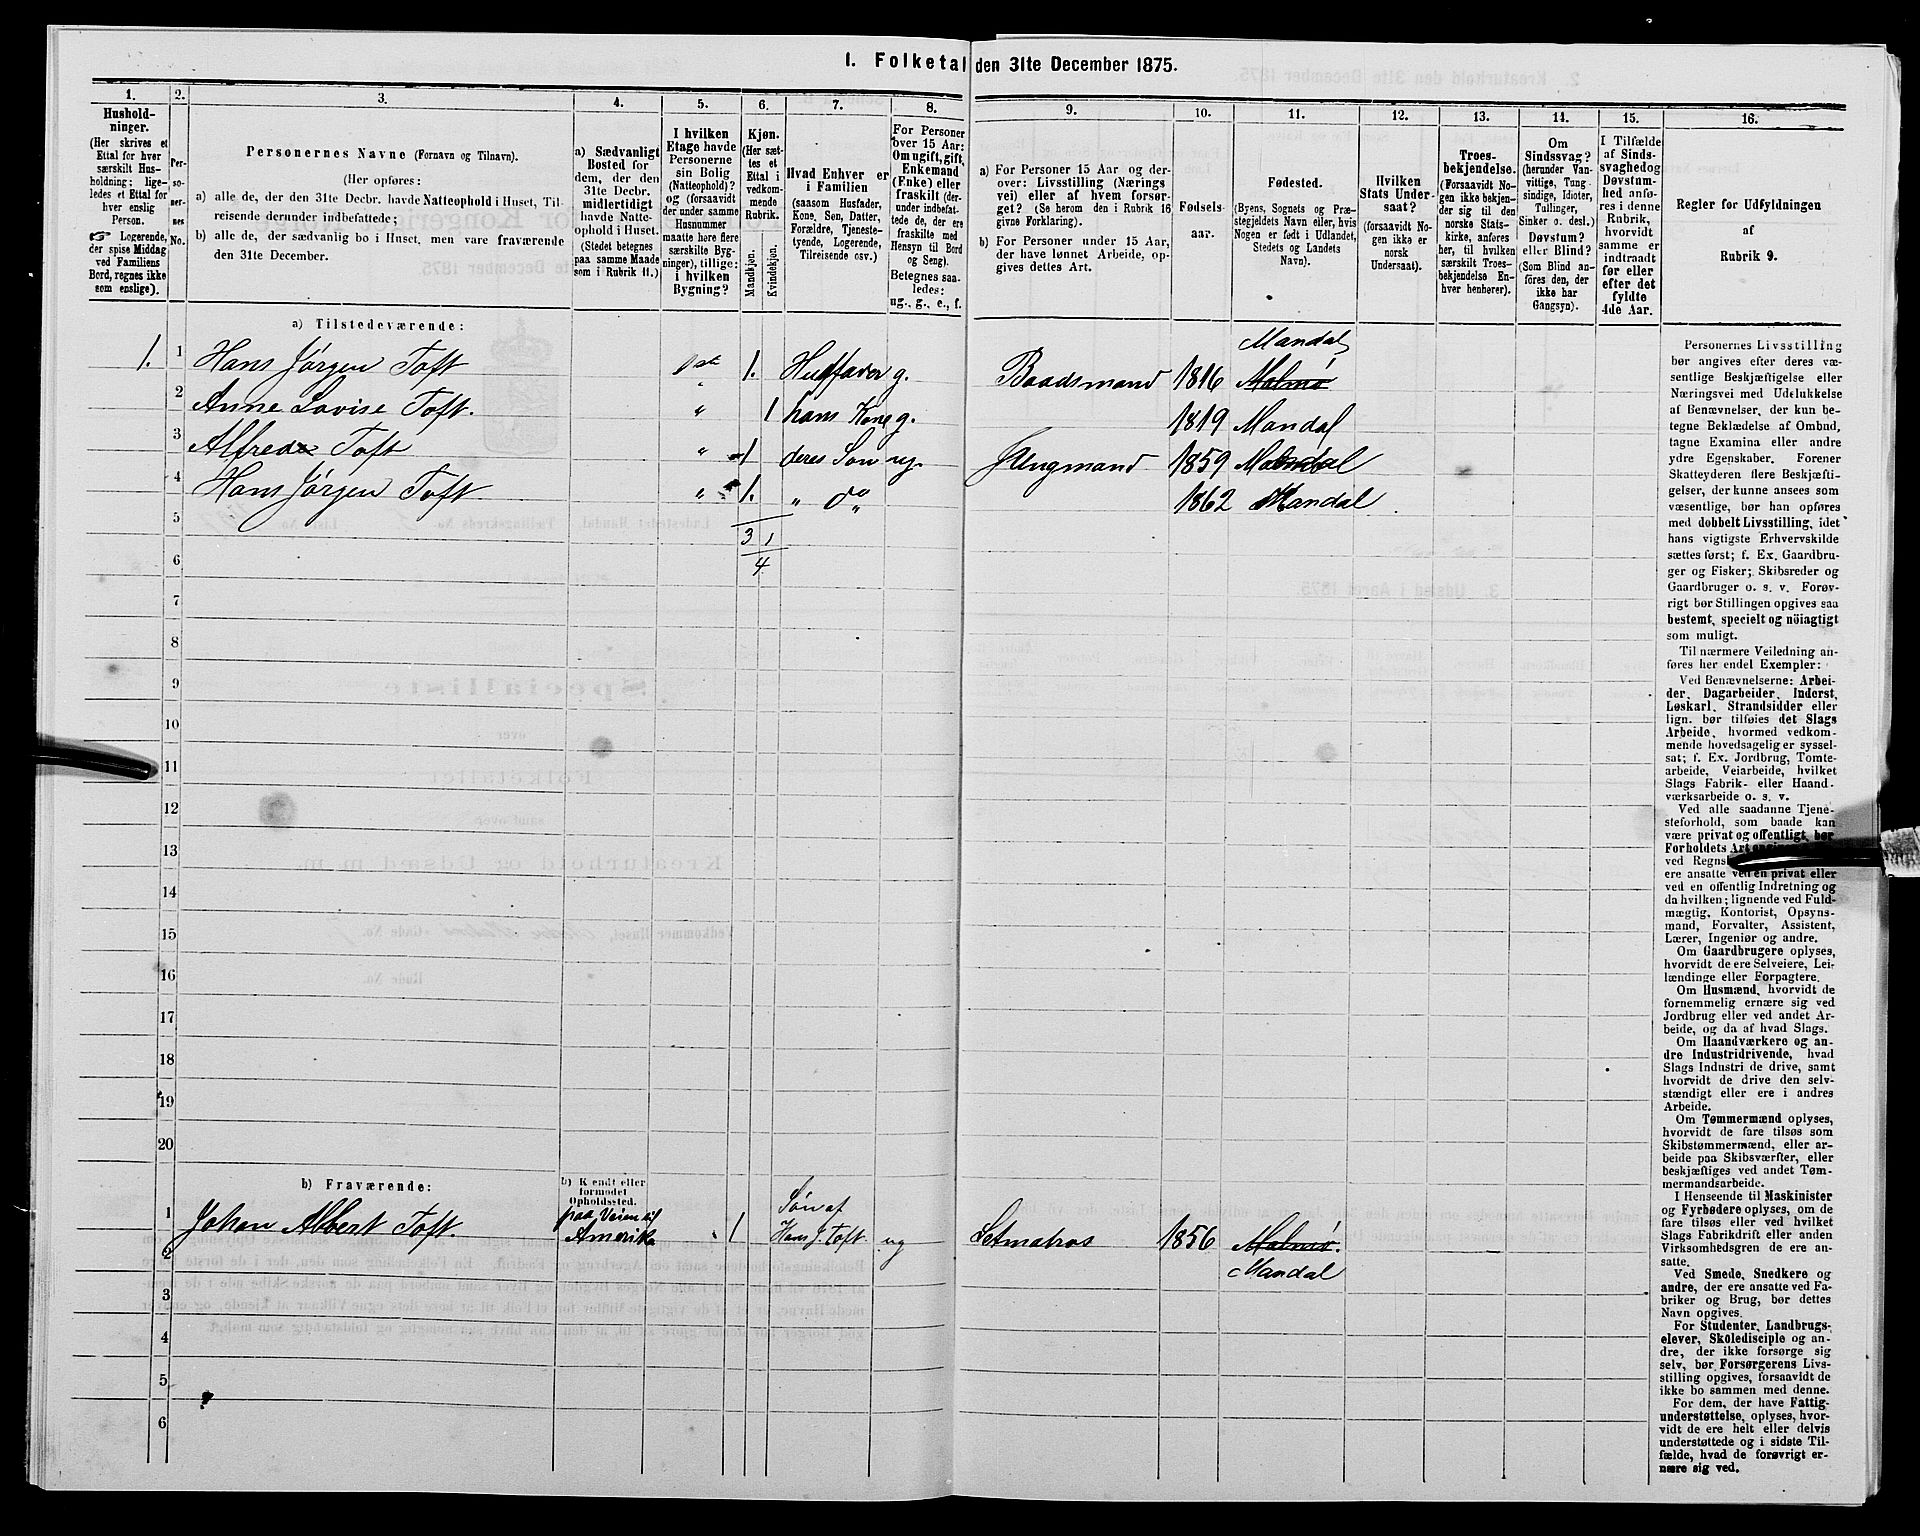 1. Folketal den 31te December 1875.
1.
Hushold-
ninger.
(Her skrives et
Ettal for hver
særskilt Hus-
holdning; lige-
ledes et Ettal for
hver enslig
Person.
☞ Logerende,
der spise Middag
ved Familiens
Bord, regnes ikke
som enslige).
2.
Per-
so-
ner-
nes
No.
3.
Personernes Navne (Fornavn og Tilnavn).
(Her opføres:
a) alle de, der den 31te Decbr. havde Natteophold i Huset, Til-
reisende derunder indbefattede;
b) alle de, der sædvanlig bo i Huset, men vare fraværende
den 31te December.
4.
a) Sædvanligt
Bosted for
dem, der den
31te Decbr.
midlertidigt
havde Natte-
ophold i Huset.
(Stedet betegnes
paa samme Maade
som i Rubrik 11.)
5.
I hvilken
Etage havde
Personerne
sin Bolig
(Natteophold)?
og (forsaavidt
der under samme
Husnummer
maatte høre flere
særskilte Byg-
ninger), tillige:
i hvilken
Bygning?
6.
Kjøn.
(Her sæt-
tes et
Ettal i
vedkom-
mende
Rubrik.
Mandkjøn.
Kvindekjøn.
7.
Hvad Enhver er
i Familien
(saasom Husfader,
Kone, Søn, Datter,
Forældre, Tjeneste-
tyende, Logerende,
Tilreisende osv.)
8.
For Personer
over 15 Aar:
Om ugift, gift,
Enkemand
(Enke) eller
fraskilt (der-
under indbefat-
tede de, der ere
fraskilte med
Hensyn til Bord
og Seng).
Betegnes saa-
ledes:
ug., g., e., f.
9.
a) For Personer 15 Aar og der-
over: Livsstilling (Nærings
vei) eller af hvem forsør-
get? (Se herom den i Rubrik 16
givne Forklaring).
b) For Personer under 15 Aar,
der have lønnet Arbeide, op-
gives dettes Art.
10.
Fødsels-
aar.
11.
Fødested.
(Byens, Sognets og Præ-
stegjeldets Navn eller, hvis
Nogen er født i Udlandet,
Stedets og Landets
Navn).
12.
Hvilken
Stats Under-
saat?
(forsaavidt No-
gen ikke er
norsk
Undersaat).
13.
Troes-
bekjendelse.
(Forsaavidt No-
gen ikke bekjen-
der sig til den
norske Stats-
kirke, anføres
her, til hvilken
særskilt Troes-
bekjendelse En-
hver henhører).
14.
Om
Sindssvag?
(herunder Van-
vittige, Tung-
sindige, Idioter,
Tullinger,
Sinker o. desl.)
Døvstum?
eller Blind?
(Som Blind an-
føres den, der
ikke har
Gangsyn).
15.
I Tilfælde
af Sinds-
svaghed og
Døvstum-
hed anfø-
res i denne
Rubrik,
hvorvidt
samme er
indtraadt
før eller
efter det
fyldte
4de Aar.
16.
Regler for Udfyldningen
af
Rubrik 9.
a) Tilstedeværende:
1. 1 Hans Jørgen Toft 1ste 1. Husfader g. Baadsmand 1816 Malmø Mandal
2 Anne Lovise Toft. " 1 hans Kone g. 1819 Mandal
3 Alfred Toft " 1 deres Søn ug. Jungmand 1859 Mandal
4 Hans Jørgen Toft " 1. " do " 1862 Mandal
5
3 1
6
4
7
8
9
10
11
12
13
14
15
16
17
18
19
20
b) Fraværende:
b) Kjendt eller
formodet
Opholdssted.
1 Johan Albert Toft. paa Veien til Amerika 1 Søn af Hans J. Toft ug Letmatros 1856 Malmø. Mandal
2
3
4
5
6
Personernes Livsstilling
bør angives efter deres væ-
sentlige Beskjæftigelse eller
Næringsvei med Udelukkelse
af Benævnelser, der kun be-
tegne Beklædelse af Ombud,
tagne Examina eller andre
ydre Egenskaber. Forener
Skatteyderen flere Beskjæfti-
gelser, der kunne ansees som
væsentlige, bør han opføres
med dobbelt Livsstilling, idet
hans vigtigste Erhvervskilde
sættes først; f. Ex. Gaardbru-
ger og Fisker; Skibsreder og
Gaardbruger o. s. v. Forøv-
rigt bør Stillingen opgives saa
bestemt, specielt og nöiagtigt
som muligt.
Til nærmere Veiledning an-
føres her endel Exempler:
Ved Benævnelserne: Arbei-
der, Dagarbeider, Inderst,
Løskarl, Strandsidder eller
lign. bør tilføies det Slags
Arbeide, hvormed vedkom-
mende hovedsagelig er syssel-
sat; f. Ex. Jordbrug, Tomte-
arbeide, Veiarbeide, hvilket
Slags Fabrik- eller Haand-
værksarbeide o. s. v.
Ved alle saadanne Tjene-
steforhold, som baade kan
være privat og offentligt, bør
Forholdets Art
ved Regns
ere ansatte ved en privat eller
ved en offentlig Indretning og
da hvilken; lignende ved Fuld-
mægtig, Kontorist, Opsyns-
mand, Forvalter, Assistent,
Lærer, Ingeniør og andre.
Om Gaardbrugere oplyses,
hvorvidt de ere Selveiere, Lei-
lændinge eller Forpagtere.
Om Husmænd, hvorvidt de
fornemmelig ernære sig ved
Jordbrug eller ved andet Ar-
beide, og da af hvad Slags.
Om Haandværkere og an-
dre Industridrivende, hvad
Slags Industri de drive, samt
hvorvidt de drive den selv-
stændigt eller ere i andres
Arbeide.
Om Tømmermænd oplyses,
hvorvidt de fare tilsøs som
Skibstømmermænd, eller ar-
beide paa Skibsværfter, eller
beskjæftiges ved andet Tøm-
mermandsarbeide.
I Henseende til Maskinister
og Fyrbødere oplyses, om de
fare tilsøs eller ved hvilket
Slags Fabrikdrift eller anden
Virksomhedsgren de ere an-
satte.
Ved Smede, Snedkere og
andre, der ere ansatte ved Fa-
briker og Brug, bør dettes
Navn opgives.
For Studenter, Landbrugs-
elever, Skoledisciple og an-
dre, der ikke forsørge sig
selv, bør Forsørgerens Livs-
stilling opgives, forsaavidt de
ikke bo sammen med denne.
For dem, der have Fattig-
understøttelse, oplyses, hvor-
vidt de ere helt eller delvis
understøttede og i sidste Til-
fælde, hvad de forøvrigt er-
nære sig ved.